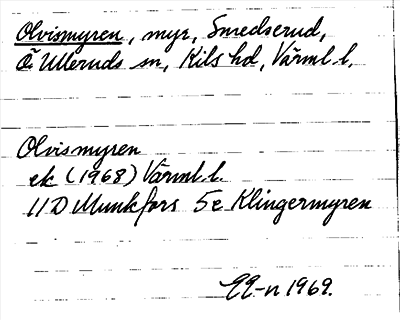 Olvismyren, myr, Smedserud,
Ö Ulleruds sn, Kils hd, Värml. l.
Olvismyren
ek (1968) Värml. l.
11D Munkfors 5e Klingermyren
EE-n 1969.